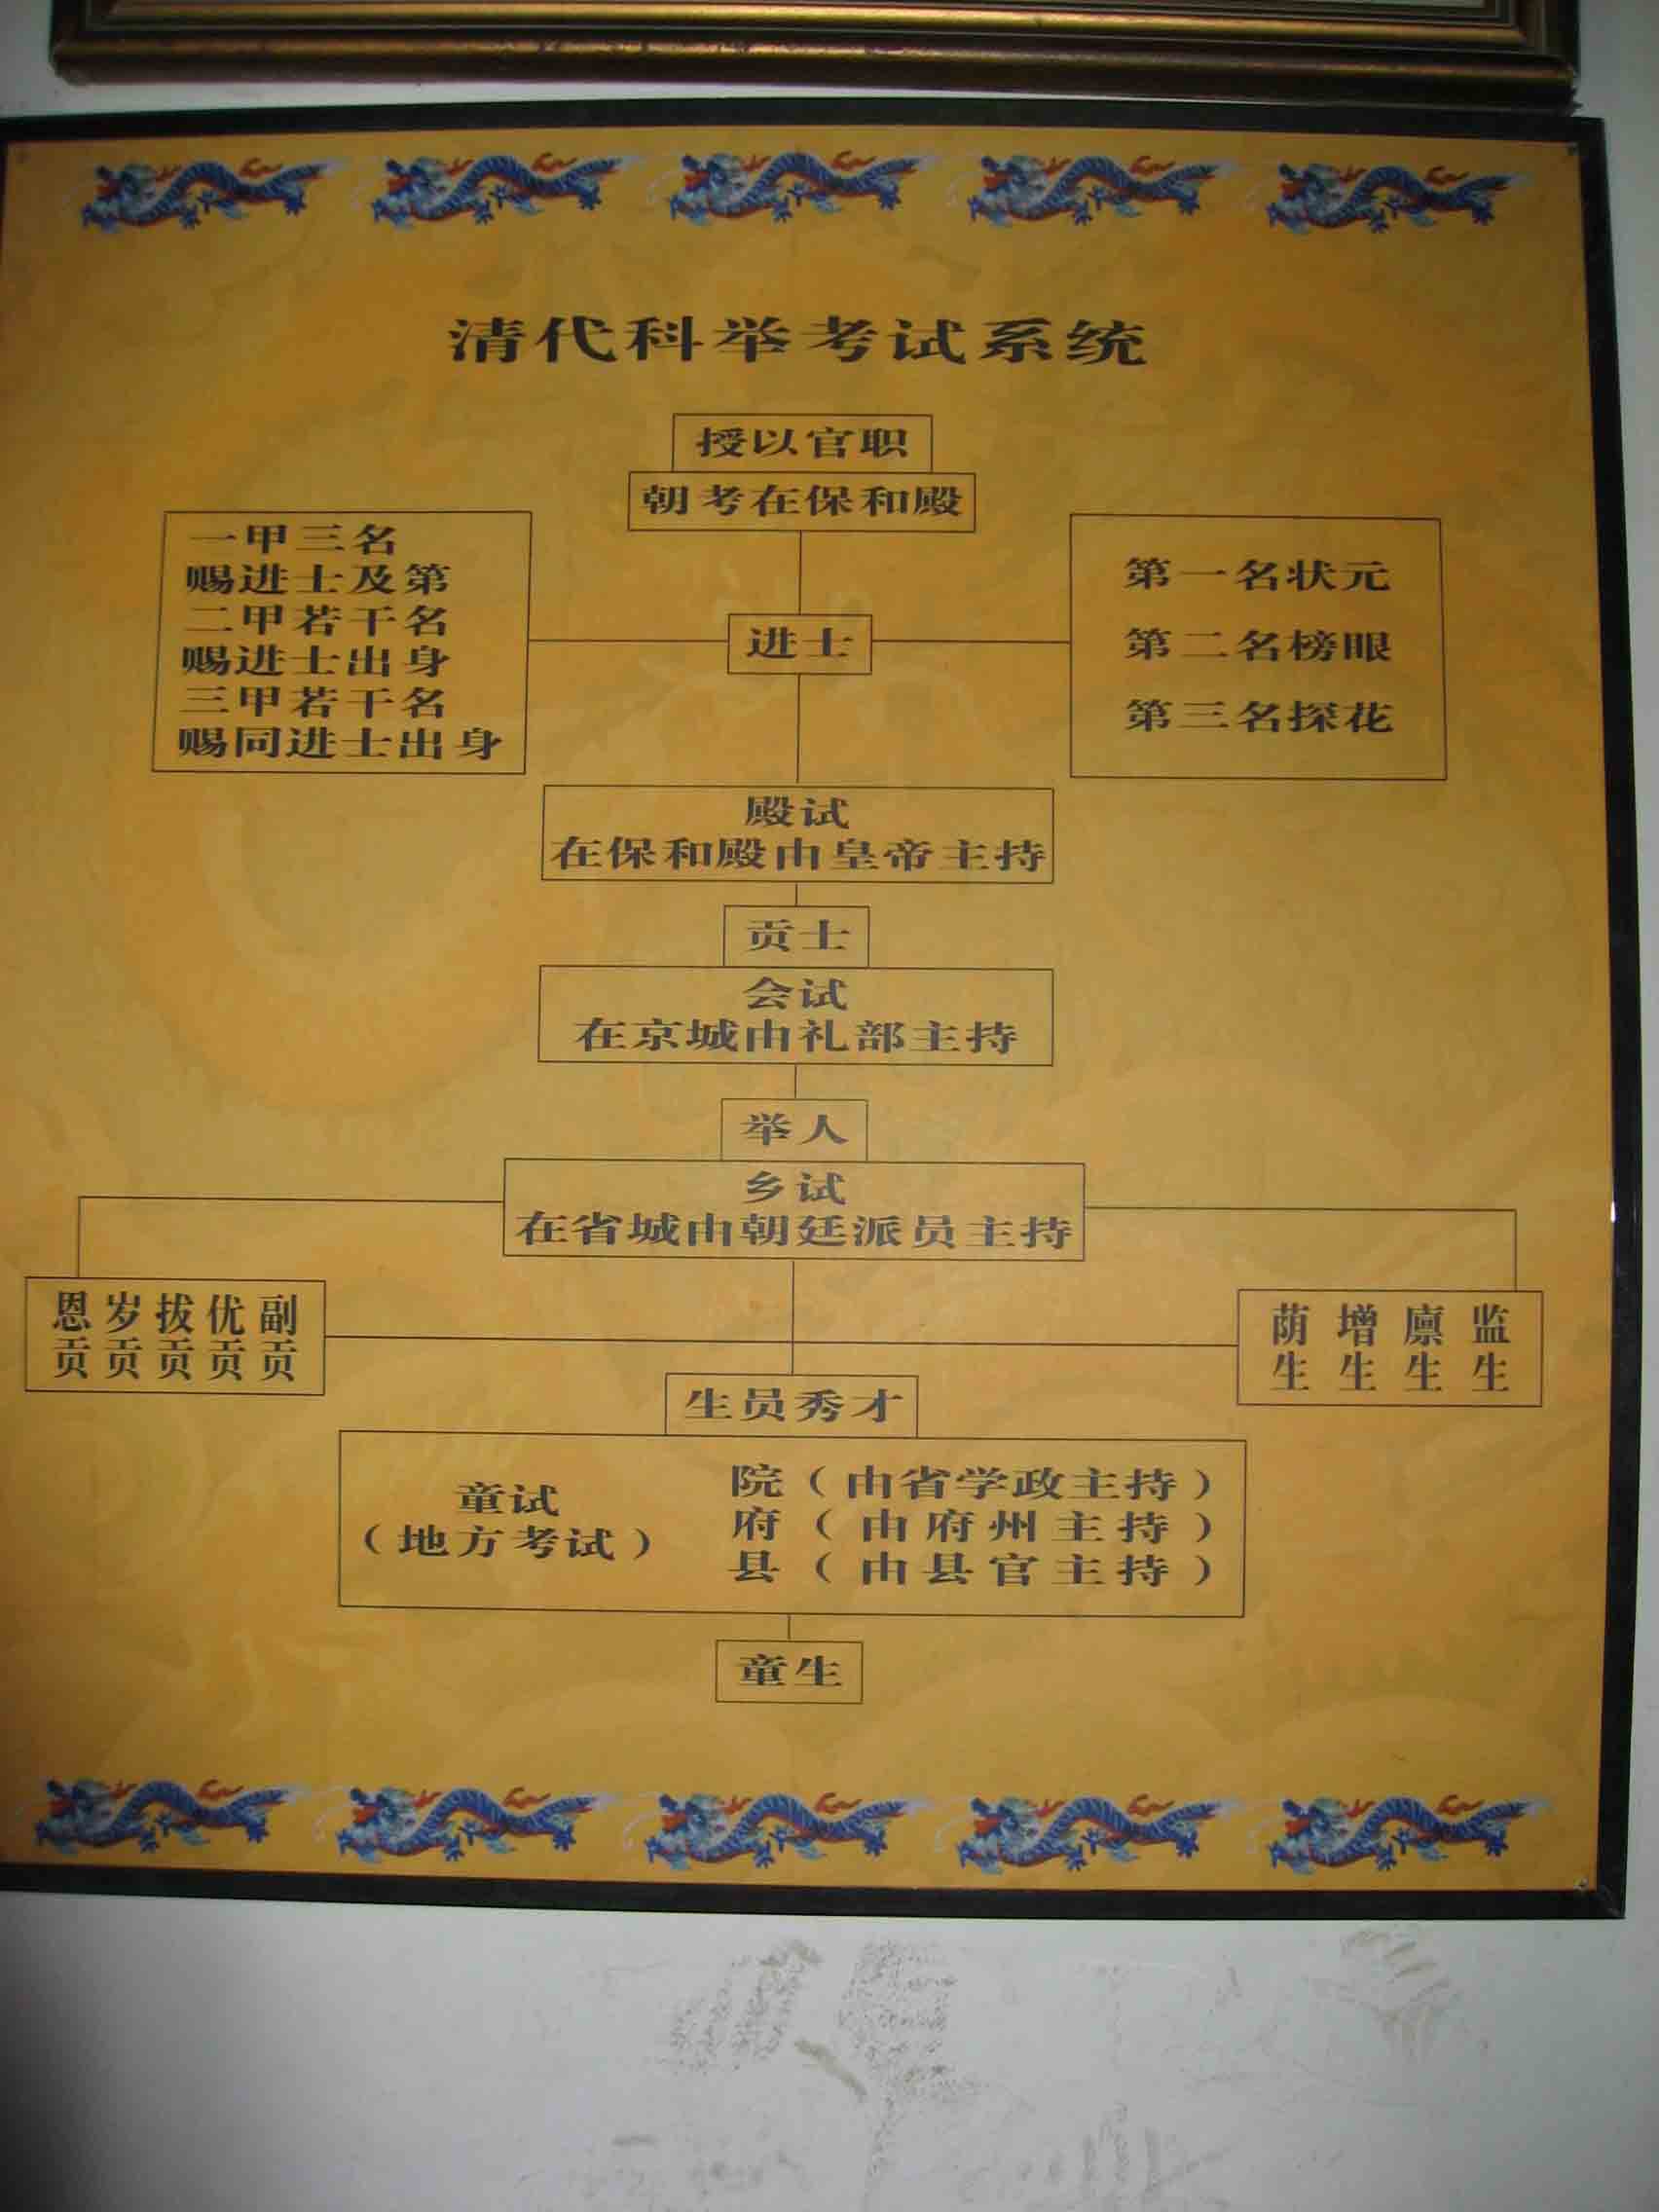 清代科举考试系统
授以官职
朝考在保和殿
一甲三名
赐进士及第
二甲若干名
赐进士出身
三甲若干名
赐同进士出身
进士
第一名状元
第二名榜眼
第三名探花
殿试
在保和殿由皇帝主持
贡士
会试
在京城由礼部主持
举人
乡试
在省城由朝廷派员主持
恩贡 岁贡 拔贡 优贡 副贡
荫生 增生 廪生 监生
生员秀才
童试
（地方考试）
院（由省学政主持）
府（由府州主持）
县（由县官主持）
童生